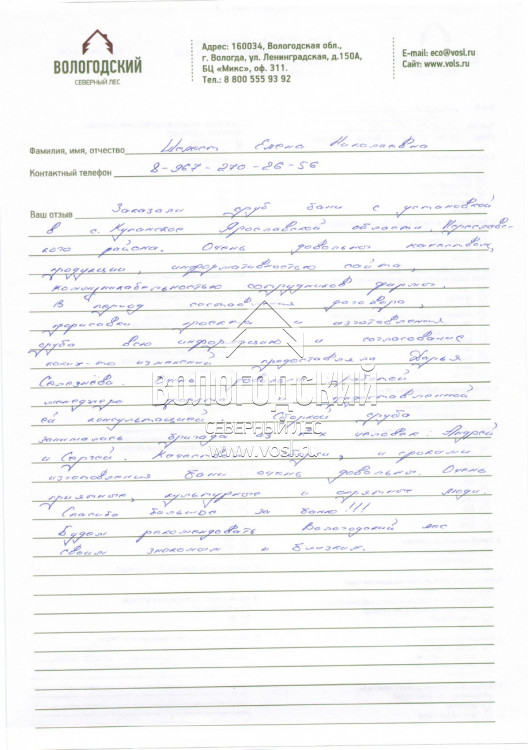 ВОЛОГОДСКИЙ
СЕВЕРНЫЙ ЛЕС
Адрес: 160034, Вологодская обл.,
г. Вологда, ул. Ленинградская, д.150А,
БЦ «Микс», оф. 311.
Тел.: 8 800 555 93 92
E-mail: eco@vosl.ru
Сайт: www.vols.ru
Фамилия, имя, отчество Елена Николаевна
Контактный телефон 8-967-210-26-56
Ваш отзыв Заказали сруб бани с установкой
в с. Купанское Ярославской области, Переславс-
кого района. Очень довольны качеством
продукции, информативностью сайта,
коммуникабельностью сотрудников фирмы.
В период составления договора,
прорисовки проекта и изготовления
сруба всю информацию и согласование
каких-то изменений предоставляла Дарья
Селезнёва.
менеджера
ей консультацией. Сборкой сруба
занималась бригада из человек: Андрей
и Сергей. и сроками
изготовления бани очень довольны. Очень
приятные, культурные и опрятные люди.
Спасибо большое за баню!!!
Будем рекомендовать Вологодский лес
своим знакомым и близким.
ВОЛОГОДСКИЙ
СЕВЕРНЫЙ ЛЕС
www.vosl.ru